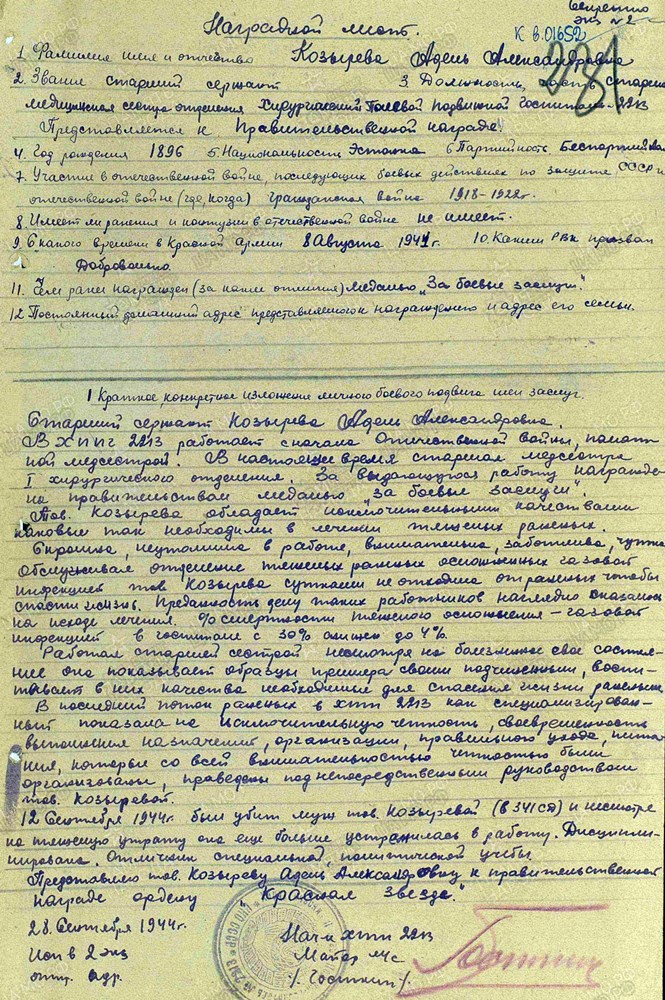 Секретно
экз № 2
К в.01652
281
Наградной лист.
1. Фамилия имя и отчество Козырева Адель Александровна
2. Звание старший сержант 3. Должность, часть Старшая
медицинская сестра отделения Хирургический Полевой Подвижной Госпиталь-2213
Представляется к Правительственной награде
4. Год рождения 1896 5. Национальность Эстонка 6 Партийность Беспартийная
7. Участие в отечественной войне, последующих боевых действиях по защите СССР и
отечественной войне (где, когда) гражданская война 1918-1922г.
8. Имеет ли ранения и контузии в отечественной войне не имеет.
9. С какого времени в Красной армии 8 Августа 1941г. 10. Каким РВК призван
Добровольно.
11. Чем ранее награжден (за какие отличия) медалью "За боевые заслуги".
12 Постоянный домашний адрес представляемого к награждению и адрес его семьи.
1 Краткое, конкретное изложение личного боевого подвига или заслуг.
Старший сержант Козырева Адель Александровна.
В ХППГ 2213 работает с начала Отечественной войны, палат-
ной медсестрой. В настоящее время старшая медсестра
I хирургического отделения. За выдающуюся работу награжде-
на правительством медалью "За боевые заслуги".
Тов. Козырева обладает исключительными качествами
каковые так необходимы в лечении тяжелых раненых.
Скромна, неутомима в работе, внимательна, заботлива, чутка
обслуживая отделение тяжелых раненых осложненных газовой
инфекцией тов. Козырева сутками не отходила от раненых чтобы
спасти жизнь. Преданность делу таких работников наглядно сказалась
на исходе лечения. % смертности тяжелого осложнения - газовой
инфекцией в госпитале с 30% снижен до 4%.
Работая старшей сестрой несмотря на болезненное свое состоя-
ние она показывает образцы примера своим подчиненным, воспи-
тывает в них качества необходимые для спасения жизни раненых
В последний поток раненых в ХППГ 2213 как специализирован-
ный показала на исключительную четкость, своевременность
выполнения назначений, организации, правильного ухода, пита-
ния, которые со всей внимательностью четкостью были
организованы, проведены под непосредственным руководством
тов. Козыревой.
12 Сентября 1944г. был убит муж тов. Козыревой (в 341СД) и несмотря
на тяжелую утрату она еще больше устремилась в работу. Дисципли-
нирована. Отличник специальной, политической учебы.
Представляю тов. Козыреву Адель Александровну к правительственной
награде ордену "Красная Звезда".
28. Сентября 1944г.
Исп в 2 экз
отп. адр.
Нач-к ХППГ 2213
Майор м/с
/. Госткин /.